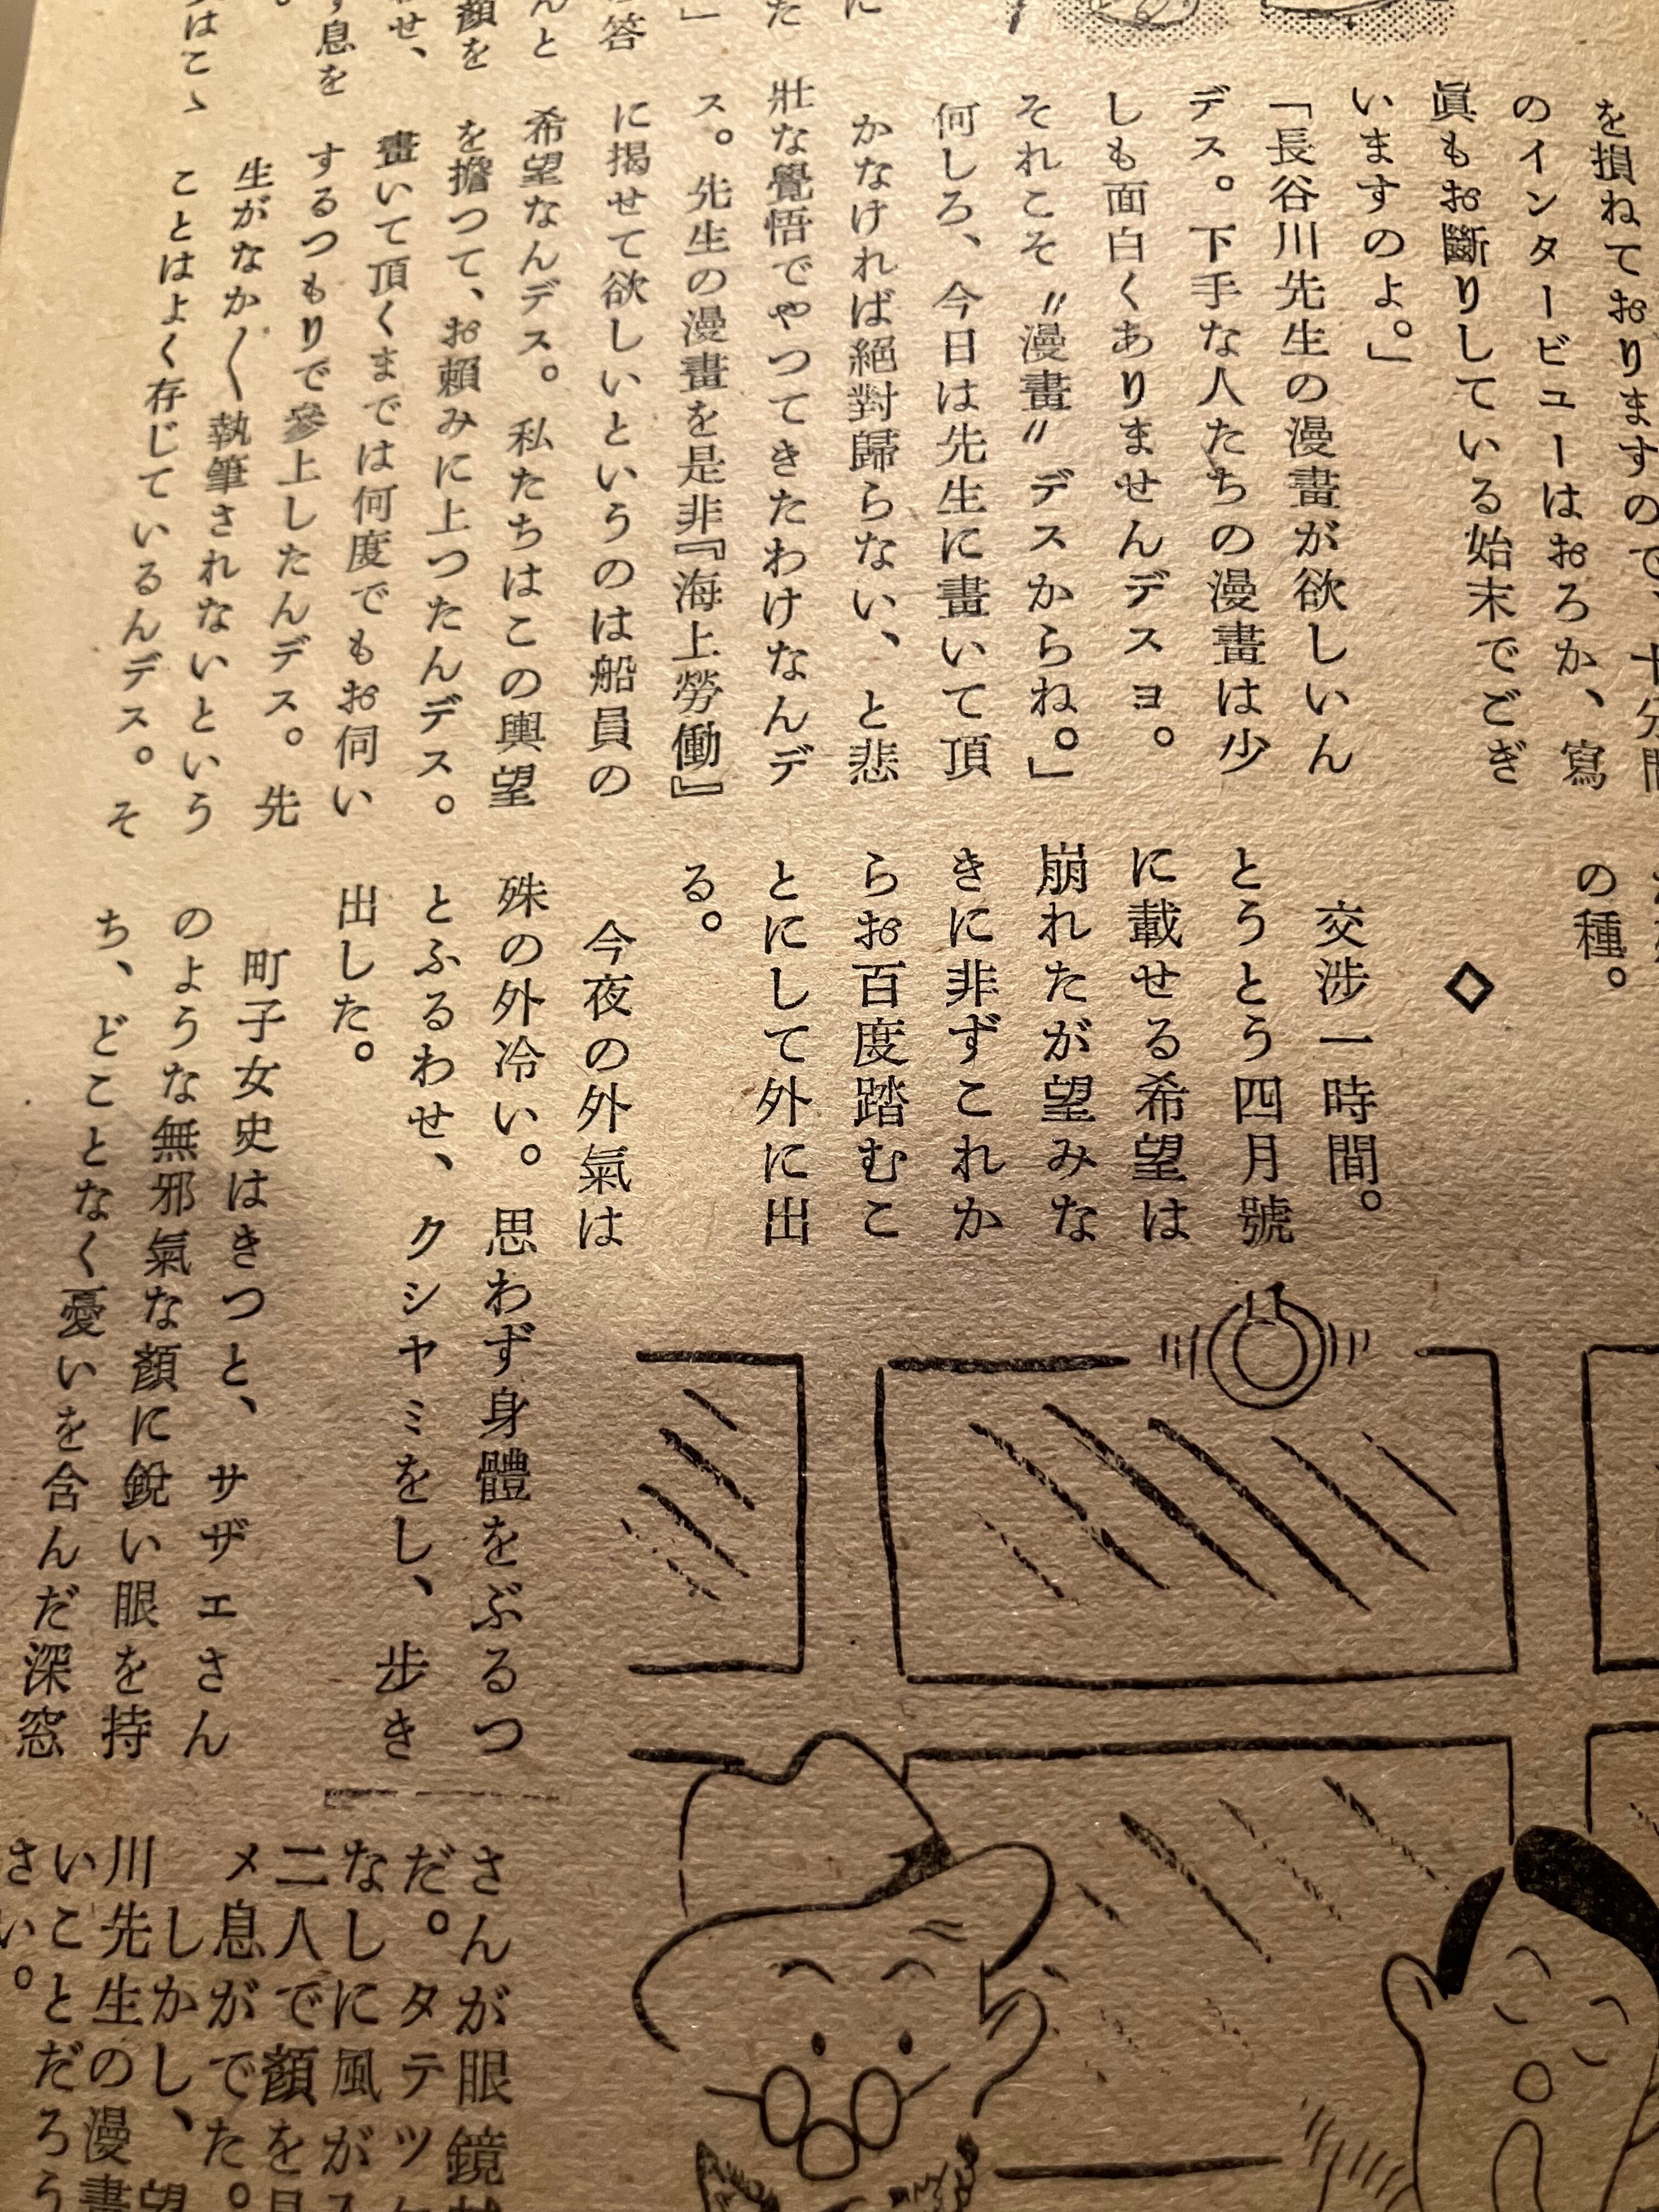 に
た
」
答
んと
顔を
わせ、
す息を
。
はこゝ
を損ねておりますので、十分間
のインタービューはおろか、寫
眞もお斷りしている始末でござ
いますのよ。」
「長谷川先生の漫畫が欲しいん
デス。下手な人たちの漫畫は少
しも面白くありませんデスヨ。
それこそ〃漫畫〃デスからね。」
何しろ、今日は先生に畫いて頂
かなければ絕對歸らない、と悲
壯な覺悟でやつてきたわけなんデ
ス。先生の漫畫を是非『海上勞働』
に揭せて欲しいというのは船員の
希望なんデス。私たちはこの輿望
を擔つて、お賴みに上つたんデス。
畫いて頂くまでは何度でもお伺い
するつもりで參上したんデス。先
生がなか〱執筆されないという
ことはよく存じているんデス。そ
の種。
◇
交渉一時間。
とうとう四月號
に載せる希望は
崩れたが望みな
きに非ずこれか
らお百度踏むこ
とにして外に出
る。
今夜の外氣は
殊の外冷い。思わず身體をぶるつ
とふるわせ、クシヤミをし、步き
出した。
町子女史はきつと、サザエさん
のような無邪氣な顏に銳い眼を持
ち、どことなく憂いを含んだ深窓
さんが眼鏡
だ。タテツ
なしに風が
二人で顏を見
メ息がでた。
しかし、望
川先生の漫畫
いことだろう
さい。